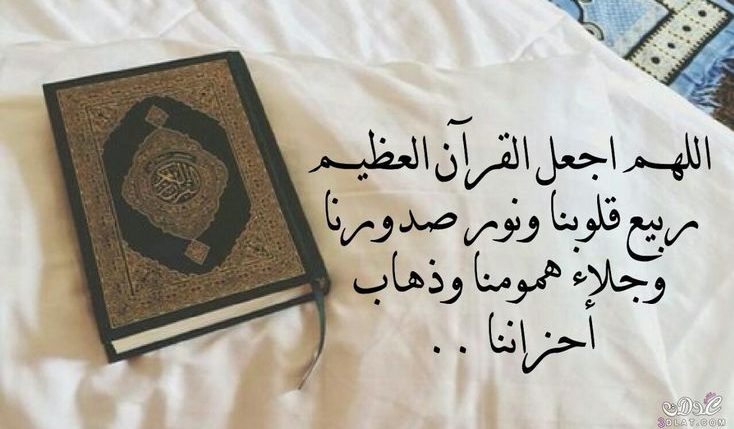 اللهم اجعل القرآن العظيم
ربيع قلوبنا ونور صدورنا
وجلاء همومنا وذهاب
أحزاننا . .
عدلات
3DLAT.COM